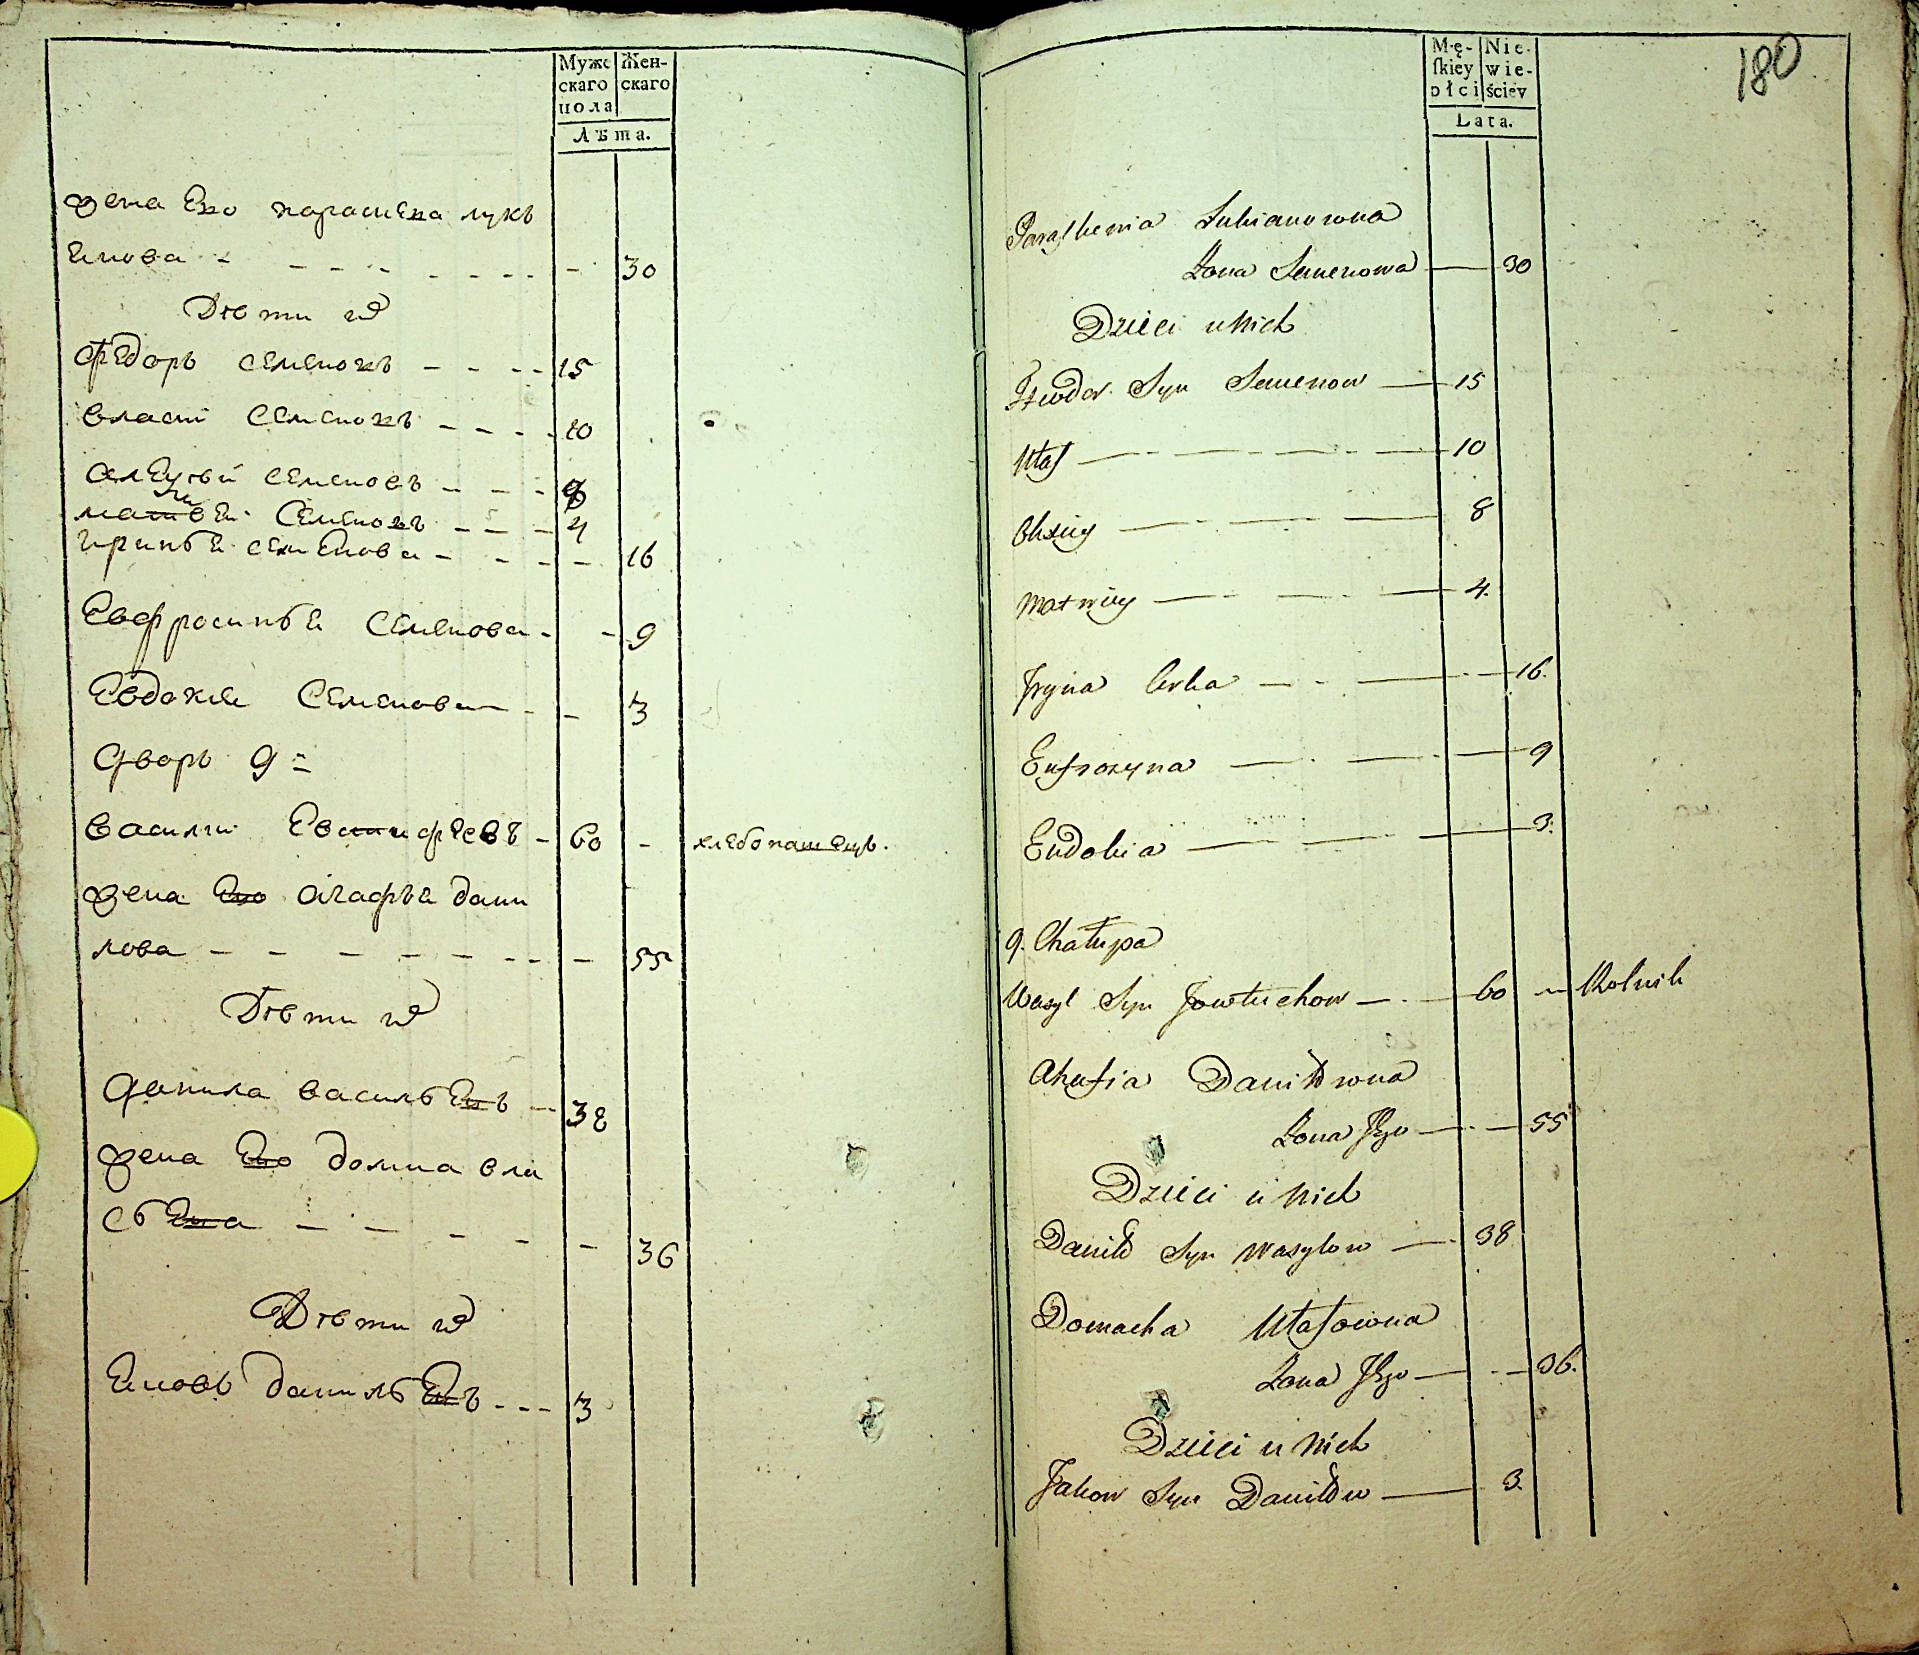 Мужс Жен-
скаго скаго
пола
Лѣта.
жена Его парасцева лукъ
янова - - - - - - - - 30
Дѣти их
Федоръ Семеновъ - - - - 15
власъ Семеновъ - - - - 10
алеѯѣй Семеновъ - - - 8
матвей Семеновъ - - - 4
ирина Семенова - - - - 16
Евфросинья Семенова - - 9
Евдокия Семенова - - 3
Дворъ 9 =
василий Евтифеевъ - 60 - хлебопашецъ.
жена Его агафья дани
лова - - - - - - - - 55
Дѣти их
Данила васильевъ - - 38
жена Его домна вла
сьева - - - - - 36
Дѣти их
Яковъ данильевъ - - - 3
180
Mę- Nie-
skiey wie-
płci ściey
Lata.
Paraskewia Lukianowna
Żona Semenowa — 30
Dzieci u Nich
Fteodor Syn Semenow — 15
Własʃ — - — - — - — 10
Olexiey — - — - — 8
Matwiey — - — - — 4.
Iryna Corka — - — - — 16.
Eufrozyna — - — - — 9
Eudokia — - — - — 3.
9. Chałupa
Wasyl Syn Jowtuchow — - — 60 - Rolnik
Ahafia Daniłowna
Żona Jego — - — 55
Dzieci u Nich
Daniło Syn Wasylow — - 38
Domacha Własowna
Żona Jego — - - — 36.
Dzieci u Nich
Jakow Syn Daniłow — 3.